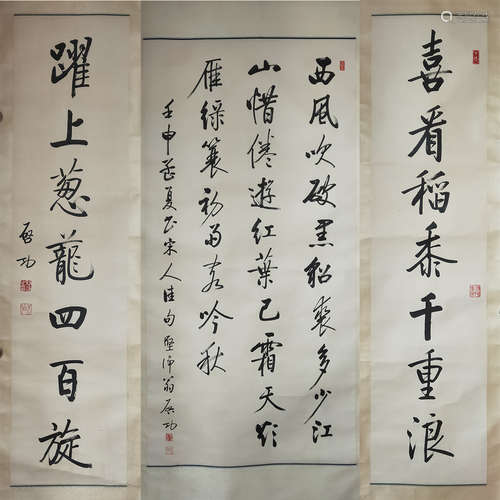 喜看稻黍千重浪
西風吹破黑貂裘多少江
山惜倦遊紅葉已霜天欲
雁綠蓑初雨客吟秋
壬申孟夏書宋人佳句堅淨翁啟功
躍上葱蘢四百旋
啟功